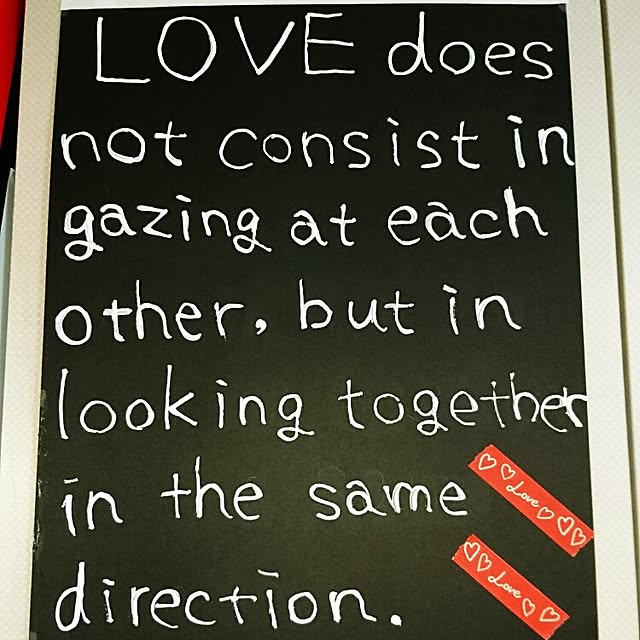 LOVE does
not consist in
gazing at each
other, but in
looking together
in the same
direction.
♡♡Love♡♡♡
♡♡Love♡♡